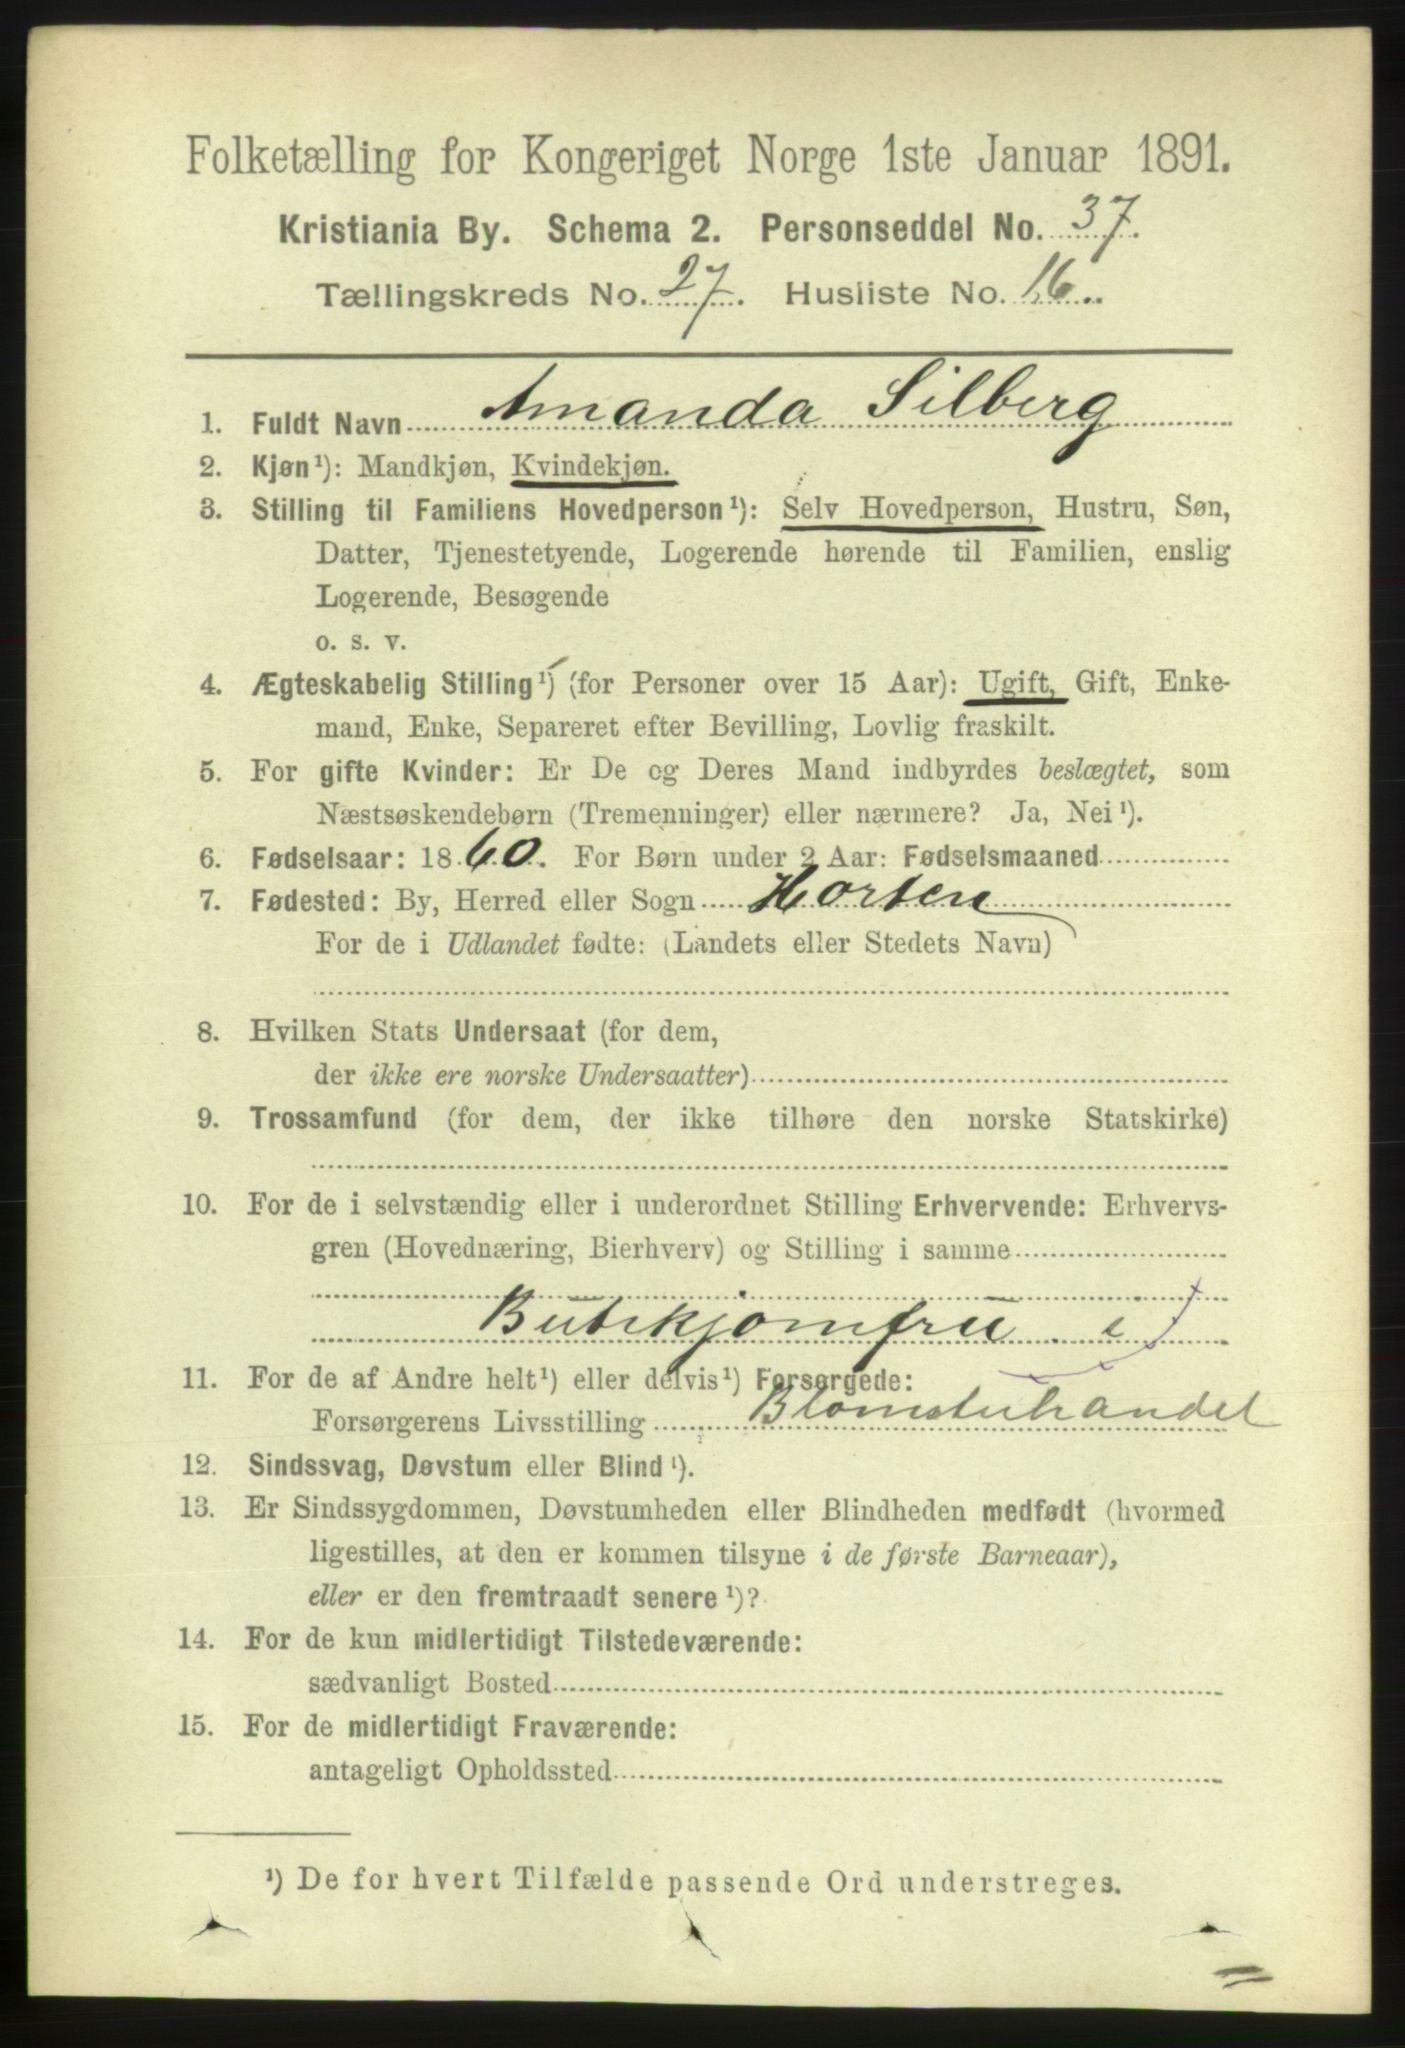 Folketælling for Kongeriget Norge 1ste Januar 1891.
Kristiania By. Schema 2. Personseddel No. 37.
Tællingskreds No. 27. Husliste No. 16.
1. Fuldt Navn Amanda Silberg
2. Kjøn¹): Mandkjøn, Kvindekjøn.
3. Stilling til Familiens Hovedperson¹): Selv Hovedperson, Hustru, Søn,
Datter, Tjenestetyende, Logerende hørende til Familien, enslig
Logerende, Besøgende
o. s. v.
4. Ægteskabelig Stilling¹) (for Personer over 15 Aar): Ugift, Gift, Enke-
mand, Enke, Separeret efter Bevilling, Lovlig fraskilt.
5. For gifte Kvinder: Er De og Deres Mand indbyrdes beslægtet, som
Næstsøskendebørn (Tremenninger) eller nærmere? Ja, Nei¹).
6. Fødselsaar: 1860. For Børn under 2 Aar: Fødselsmaaned
7. Fødested: By, Herred eller Sogn Horten
For de i Udlandet fødte: (Landets eller Stedets Navn)
8. Hvilken Stats Undersaat (for dem,
der ikke ere norske Undersaatter)
9. Trossamfund (for dem, der ikke tilhøre den norske Statskirke)
10. For de i selvstændig eller i underordnet Stilling Erhvervende: Erhvervs-
gren (Hovednæring, Bierhverv) og Stilling i samme
Butikjomfru i
11. For de af Andre helt¹) eller delvis¹) Forsørgede:
Forsørgerens Livsstilling Blomsterhandel
12. Sindssvag, Døvstum eller Blind¹).
13. Er Sindssygdommen, Døvstumheden eller Blindheden medfødt (hvormed
ligestilles, at den er kommen tilsyne i de første Barneaar),
eller er den fremtraadt senere¹)?
14. For de kun midlertidigt Tilstedeværende:
sædvanligt Bosted
15. For de midlertidigt Fraværende:
antageligt Opholdssted
¹) De for hvert Tilfælde passende Ord understreges.